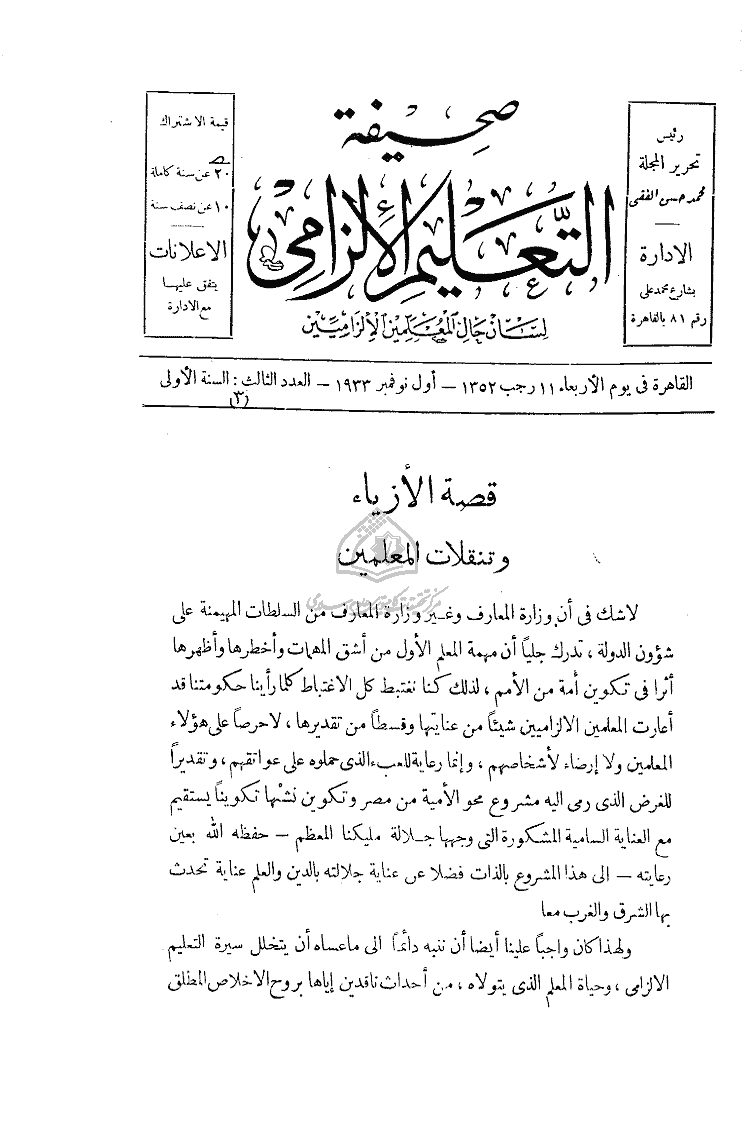 رئيس
تحرير المجلة
محمد حسن الفقى
الادارة
بشارع محمد على
رقم ٨١ بالقاهرة
صحيفة
التعليم الإلزامى
لسان حال المعلمين الإلزاميين
قيمة الاشتراك
٢٠ عن سنة كاملة
١٠ عن نصف سنة
الاعلانات
يتفق عليها
مع الادارة
القاهرة فى يوم الأربعاء ١١ رجب ١٣٥٢ – أول نوفمبر ١٩٣٣ – العدد الثالث : السنة الأولى
(٣)
قصة الأزياء
وتنقلات المعلمين
لاشك فى أن وزارة المعارف وغير وزارة المعارف من السلطات المهيمنة على
شؤون الدولة ، تدرك جلياً أن مهمة المعلم الأول من أشق المهمات وأخطرها وأظهرها
أثرا فى تكوين أمة من الأمم ، لذلك كنا نغتبط كل الاغتباط كلما رأينا حكومتنا قد
أعارت المعلمين الالزاميين شيئاً من عنايتها وقسطاً من تقديرها ، لاحرصاً على هؤلاء
المعلمين ولا إرضاء لأشخاصهم ، وإنما رعاية للعبء الذى حملوه على عواتقهم ، وتقديراً
للغرض الذى رمى اليه مشروع محو الأمية من مصر وتكوين نشئها تكويناً يستقيم
مع العناية السامية المشكورة التى وجهها جلالة مليكنا المعظم – حفظه الله بعين
رعايته – الى هذا المشروع بالذات فضلا عن عناية جلالته بالدين والعلم عناية تحدث
بها الشرق والغرب معا
ولهذا كان واجباً علينا أيضا أن ننبه دائماً الى ماعساه أن يتخلل سيرة التعليم
الالزامى ، وحياة المعلم الذى يتولاه ، من أحداث ناقدين إياها بروح الاخلاص المطلق